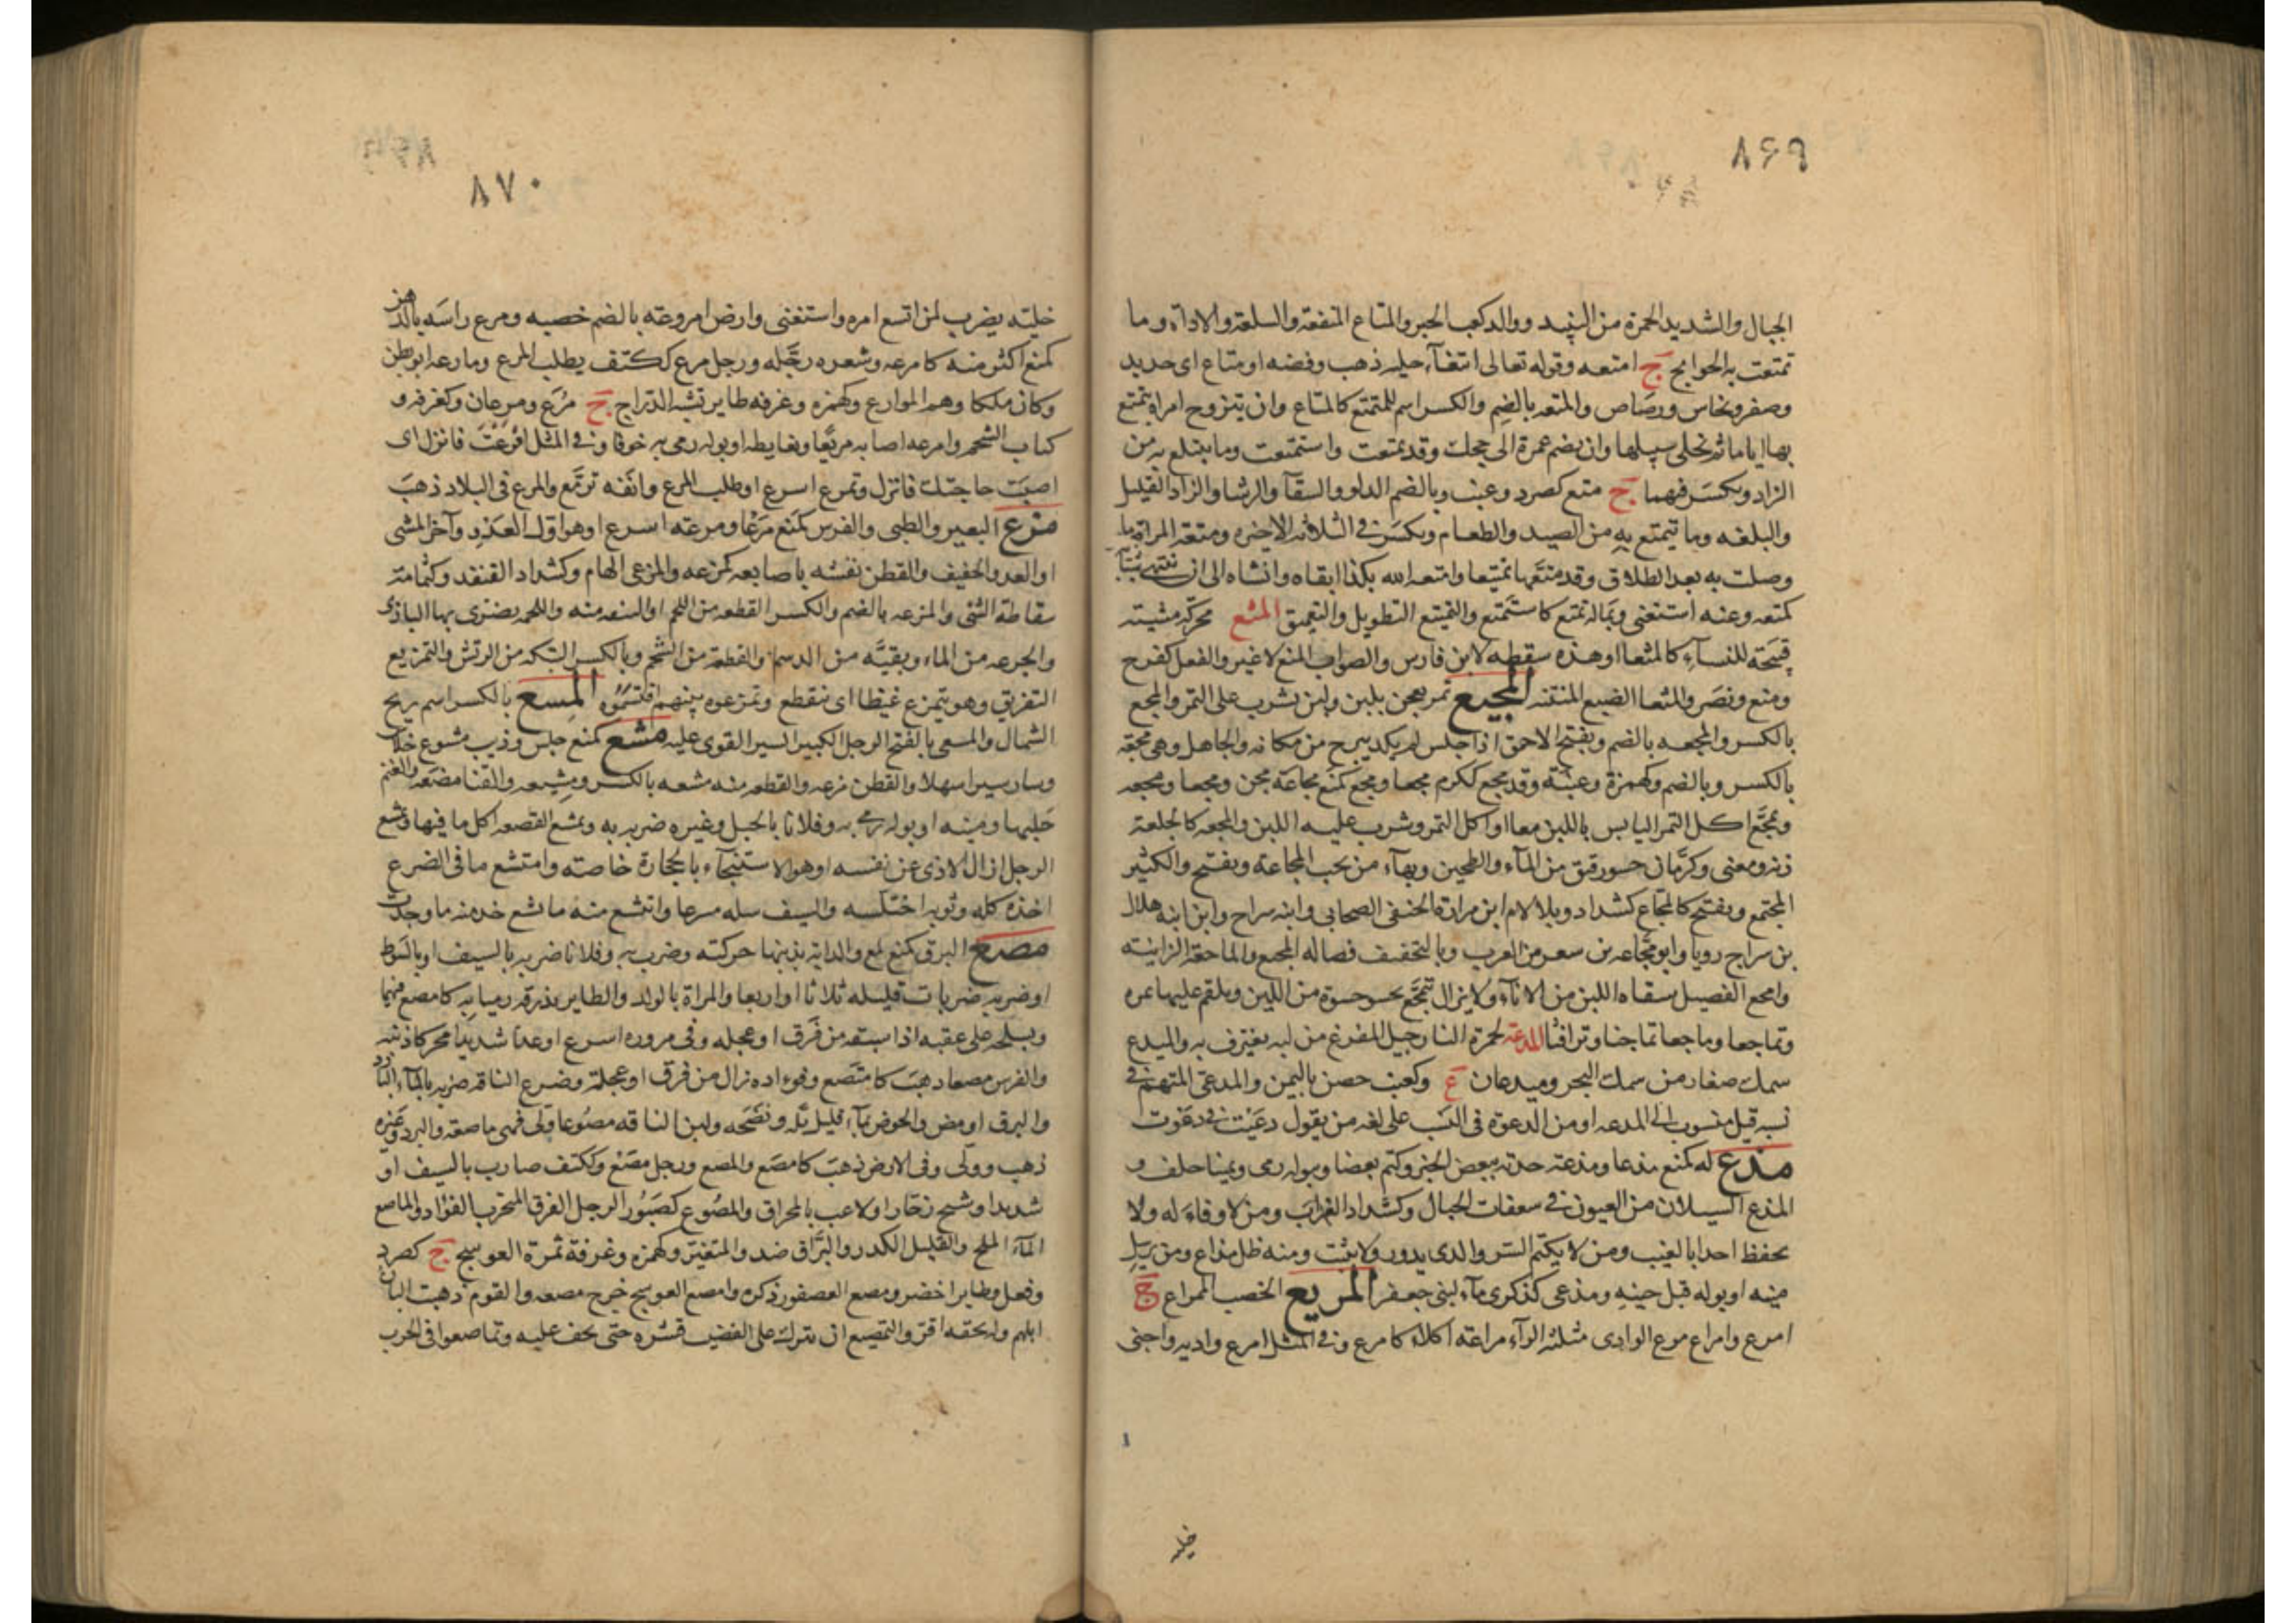 ٨٦٩
الجبال والشديد الحمرة من النبيد ووالد كعب الحبر والمتاع المنفعة والسلعة والاداة وما
تمتعت به الحوايج ج امتعه وقوله تعالى ابتغآء حليه ذهب وفضه او متاع اى حديد
وصفر ونحاس ورصاص والمتعه بالضم والكسر اسم للتمتع كالمتاع وان يتزوج امراة يتمتع
بها اياما ثم يخلى سبيلها وان يضم عمرة الى حجك وقد تمتعت واستمتعت وما يتبلغ به من
الزاد ويكسر فهما ج متع كصرد وعنب وبالضم الدلو والسقآ والرشا والزاد القليل
والبلغه وما يتمتع به من الصيد والطعام ويكسر فى الثلاثه الاخيره ومتعة المراة ما
وصلت به بعد الطلاق وقد متعها تمتيعا وامتعه الله بكذا ابقاه وانشاه الى ان
كمتعه وعنه استغنى وبماله تمتع كاستمتع والتمتيع التطويل والتعميق المثع محركة مشية
قبيحة للنسآء كالمثعا او هذه سقطه لابن فارس والصواب المنع لا غير والفعل كفرح
ومنع ونصر والمثعا الضبع المنتنه المجيع تمر يعجن بلبن ولبن يشرب على التمر والمجع
بالكسر والمجعه بالضم ويفتح الاحمق اذا جلس لم يكد يبرح من مكانه والجاهل وهى مجعة
بالكسر وبالضم وكهمزة وعنبة وقد مجع ككرم مجعا ومجع كمنع مجاعة مجن ومجعا ومجعه
وتمجع اكل التمر اليابس باللبن معا او اكل التمر وشرب عليه اللبن والمجعه كالخلعة
زنة ومعنى وكرمان حسو رقيق من المآء والطحين وبهآء من يحب المجاعة ويفتح والكثير
المجتمع ويفتح كالمجاع كشداد وبلا لام ابن مرارة الحنفى الصحابى وابنه سراج وابن ابنه هلال
بن سراج رويا وابو مجاعه بن سعر من العرب وبالتخفيف فصاله المجيع والماجعة الزانيه
وامجع الفصيل سقاه اللبن من الانآء ولا يزال تمجع يحسو حسوة من اللبن ويلقم عليها تمره
وتماجعا وماجعا تماجنا وترافثا المدعة كحمرة النارجيل المفرغ من لبه يغترف به والميدع
سمك صغار من سمك البحر وميدعان ع وكعنب حصن باليمن والمدعى المتهم فى
نسبه قيل منسوب الى المدعه او من الدعوة فى النسب على لغه من يقول دعيت فى دعوت
مذع له كمنع مذعا ومذعة حدثه ببعض الخبر وكتم بعضا وببوله رمى ويمينا حلف و
المذع السيلان من العيون فى سعفات الجبال وكشداد الكذاب ومن لا وفاء له ولا
يحفظ احدا بالغيب ومن لا يكتم السر والذى يدور ولا يثبت ومنه ظل مذاع ومن يرسل
منيه او بوله قبل حينه ومذعى كذكرى مآء لبنى جعفر المريع الخصب كالممراع ج
امرع وامراع مرع الوادى مثلثة الرآء مراعة اكلأ كامرع وفى المثل امرع واديه واجنى
خليه
٨٧٠
خليه يضرب لمن اتسع امره واستغنى وارض امروعة بالضم خصبه ومرع راسه بالدهن
كمنع اكثر منه كامرعه وشعره رجله ورجل مرع ككتف يطلب المرع ومارعه ابو بطن
وكان ملكا وهم الموارع وكهمزه وغرفه طاير تشبه الدراج ج مرع ومرعان وكغرفه و
كتاب الشحم وامرعه اصابه مريعا وبغايطه او بوله رمى به خوفا وفى المثل امرعت فانزل اى
اصبت حاجتك فانزل وتمرع اسرع او طلب المرع وانفه ترمع والمرع فى البلاد ذهب
مزع البعير والظبى والفرس كمنع مزعا ومزعة اسرع او هو اول العدو وآخر المشى
او العدو الخفيف والقطن نفشه باصابعه كمزعه والمزعى النمام وكشداد القنفد وكثمامة
سقاطة الشى والمزعه بالضم والكسر القطعه من اللحم او النتفه منه واللحمه يضرى بها البازى
والجرعه من الماء وبقية من الدسم والقطعة من الشحم وبالكسر البتكه من الريش والتمزيع
التفريق وهو يتمزع غيظا اى يتقطع وتمزعوه بينهم اقتسموه المسع بالكسر اسم ريح
الشمال والمسعى بالفتح الرجل الكبير السير القوى عليه مشع كمنع خلس وذيب مشوع خلاس
وسار سيرا سهلا والقطن مزعه والقطعه منه مشعه بالكسر ومشيعه والقثا مضغه والغنم
حلبها ومنيه او بوله رمى به وفلانا بالحبل وغيره ضربه به ومشع القصعه اكل ما فيها وتمشع
الرجل ازال الاذى عن نفسه او هو الاستنجآء بالحجارة خاصة وامتشع ما فى الضرع
اخذه كله وثوبه اختلسه والسيف سله مسرعا وامتشع منه ما مشع خذ منه ما وجدت
مصع البرق كمنع لمع والدابة بذنبها حركته وضرب به وفلانا ضربه بالسيف او بالسوط
او ضربه ضربات قليله ثلاثا او اربعا والمراة بالولد والطاير بذرقه رميا به كامصع فيهما
وبسلحه على عقبه اذا سبقه من فرق او عجله وفى مروره اسرع او عدا شديدا محركا ذنبه
والفرس مصعا ذهب كامتصع وفواده زال من فرق او عجلة وضرع الناقه ضربه بالمآء البارد
والبرق اومض والحوض بمآء قليل بله ونضحه ولبن الناقه مصوعا ولى فهى ماصعه والبرد وغيره
ذهب وولى وفى الارض ذهب كامصع والمصع ورجل مصع وككتف ضارب بالسيف او
شديد او شيخ زحار او لاعب بالمحراق والمصوع كصبور الرجل الفرق المنخوب الفؤاد والماصع
المآء الملح والقليل الكدر والبراق ضد والمتغير وكهمزه وغرفة ثمرة العوسج ج كصرد
وقفل وطاير اخضر ومصع العصفور ذكره وامصع العوسج خرج مصعه والقوم ذهبت البان
ابلهم وله بحقه اقر والتمصيع ان يترك على القضيب قشره حتى يجف عليه وتماصعوا فى الحرب